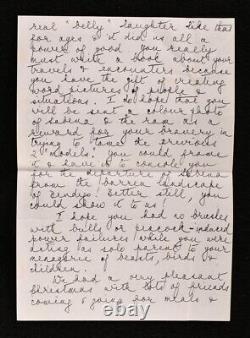 real "belly" laughter like that
for ages & it did us all a
power of good you really
must write a book about your
travels & encounters because
you have the gift of creating
word pictures of people &
situations. I do hope that you
will be sent a colour photo
of Sabrina & the ram as a
reward for your bravery in
trying to tame the previous
2 "models" you could frame
it & have it to console you
for the departure of Serena
from the barren landscape
of Bendigo! Better still, you
could show it to us!
I hope you had no brushes
with bulls or peacock-induced
power failures while you were
acting as solo parent to your
menagerie of beasts, birds &
children.
We had a very pleasant
Christmas with lots of friends
coming & going for meals &
© ebay